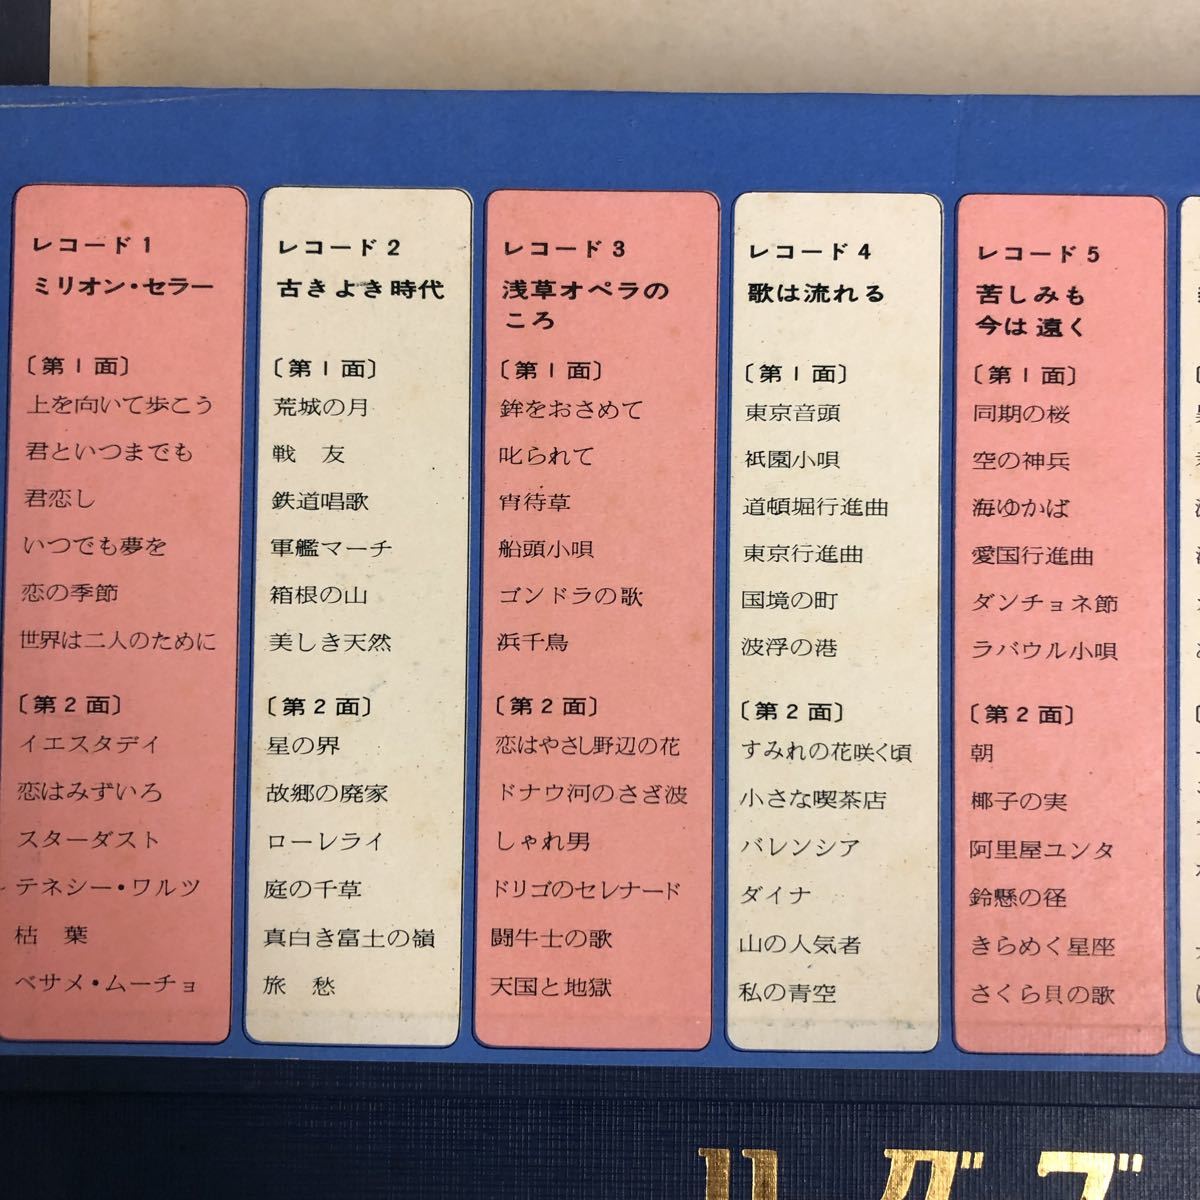 レコード1
ミリオン・セラー
〔第1面〕
上を向いて歩こう
君といつまでも
君恋し
いつでも夢を
恋の季節
世界は二人のために
〔第2面〕
イエスタデイ
恋はみずいろ
スターダスト
テネシー・ワルツ
枯　葉
ベサメ・ムーチョ
レコード2
古きよき時代
〔第1面〕
荒城の月
戦　友
鉄道唱歌
軍艦マーチ
箱根の山
美しき天然
〔第2面〕
星の界
故郷の廃家
ローレライ
庭の千草
真白き富士の嶺
旅　愁
レコード3
浅草オペラの
ころ
〔第1面〕
鉾をおさめて
叱られて
宵待草
船頭小唄
ゴンドラの歌
浜千鳥
〔第2面〕
恋はやさし野辺の花
ドナウ河のさざ波
しゃれ男
ドリゴのセレナード
闘牛士の歌
天国と地獄
レコード4
歌は流れる
〔第1面〕
東京音頭
祇園小唄
道頓堀行進曲
東京行進曲
国境の町
波浮の港
〔第2面〕
すみれの花咲く頃
小さな喫茶店
バレンシア
ダイナ
山の人気者
私の青空
レコード5
苦しみも
今は遠く
〔第1面〕
同期の桜
空の神兵
海ゆかば
愛国行進曲
ダンチョネ節
ラバウル小唄
〔第2面〕
朝
椰子の実
阿里屋ユンタ
鈴懸の径
きらめく星座
さくら貝の歌